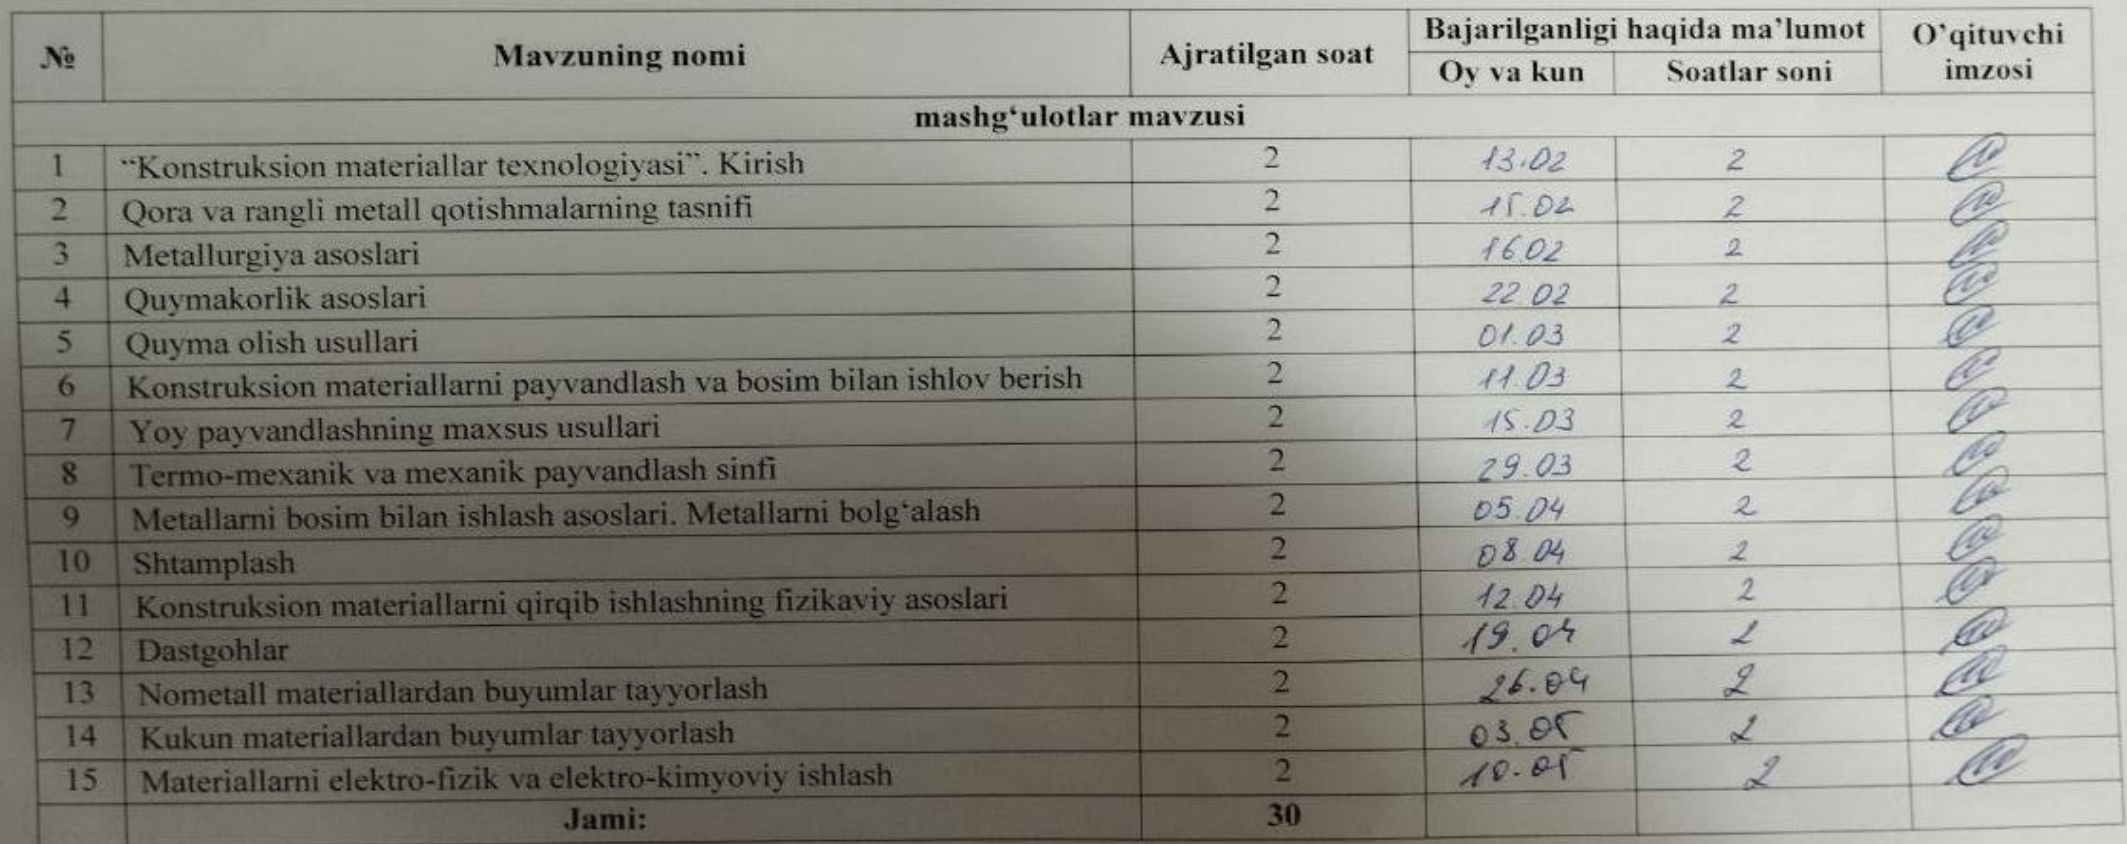 № Mavzuning nomi Ajratilgan soat Bajarilganligi haqida ma’lumot O’qituvchi imzosi
Oy va kun Soatlar soni
mashg‘ulotlar mavzusi
1 “Konstruksion materiallar texnologiyasi”. Kirish 2 13.02 2
2 Qora va rangli metall qotishmalarning tasnifi 2 15.02 2
3 Metallurgiya asoslari 2 16.02 2
4 Quymakorlik asoslari 2 22.02 2
5 Quyma olish usullari 2 01.03 2
6 Konstruksion materiallarni payvandlash va bosim bilan ishlov berish 2 11.03 2
7 Yoy payvandlashning maxsus usullari 2 15.03 2
8 Termo-mexanik va mexanik payvandlash sinfi 2 29.03 2
9 Metallarni bosim bilan ishlash asoslari. Metallarni bolg‘alash 2 05.04 2
10 Shtamplash 2 08.04 2
11 Konstruksion materiallarni qirqib ishlashning fizikaviy asoslari 2 12.04 2
12 Dastgohlar 2 19.04 2
13 Nometall materiallardan buyumlar tayyorlash 2 26.04 2
14 Kukun materiallardan buyumlar tayyorlash 2 03.05 2
15 Materiallarni elektro-fizik va elektro-kimyoviy ishlash 2 10.05 2
Jami: 30